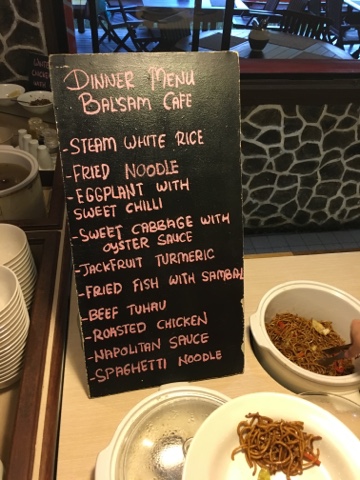 DINNER MENU
BAL'SAM CAFE
-STEAM WHITE RICE
-FRIED NOODLE
-EGGPLANT WITH
SWEET CHILLI
-SWEET CABBAGE WITH
OYSTER SAUCE
-JACKFRUIT TURMERIC
-FRIED FISH WITH SAMBAL
-BEEF TUHAU
-ROASTED CHICKEN
-NAPOLITAN SAUCE
-SPAGHETTI NOODLE